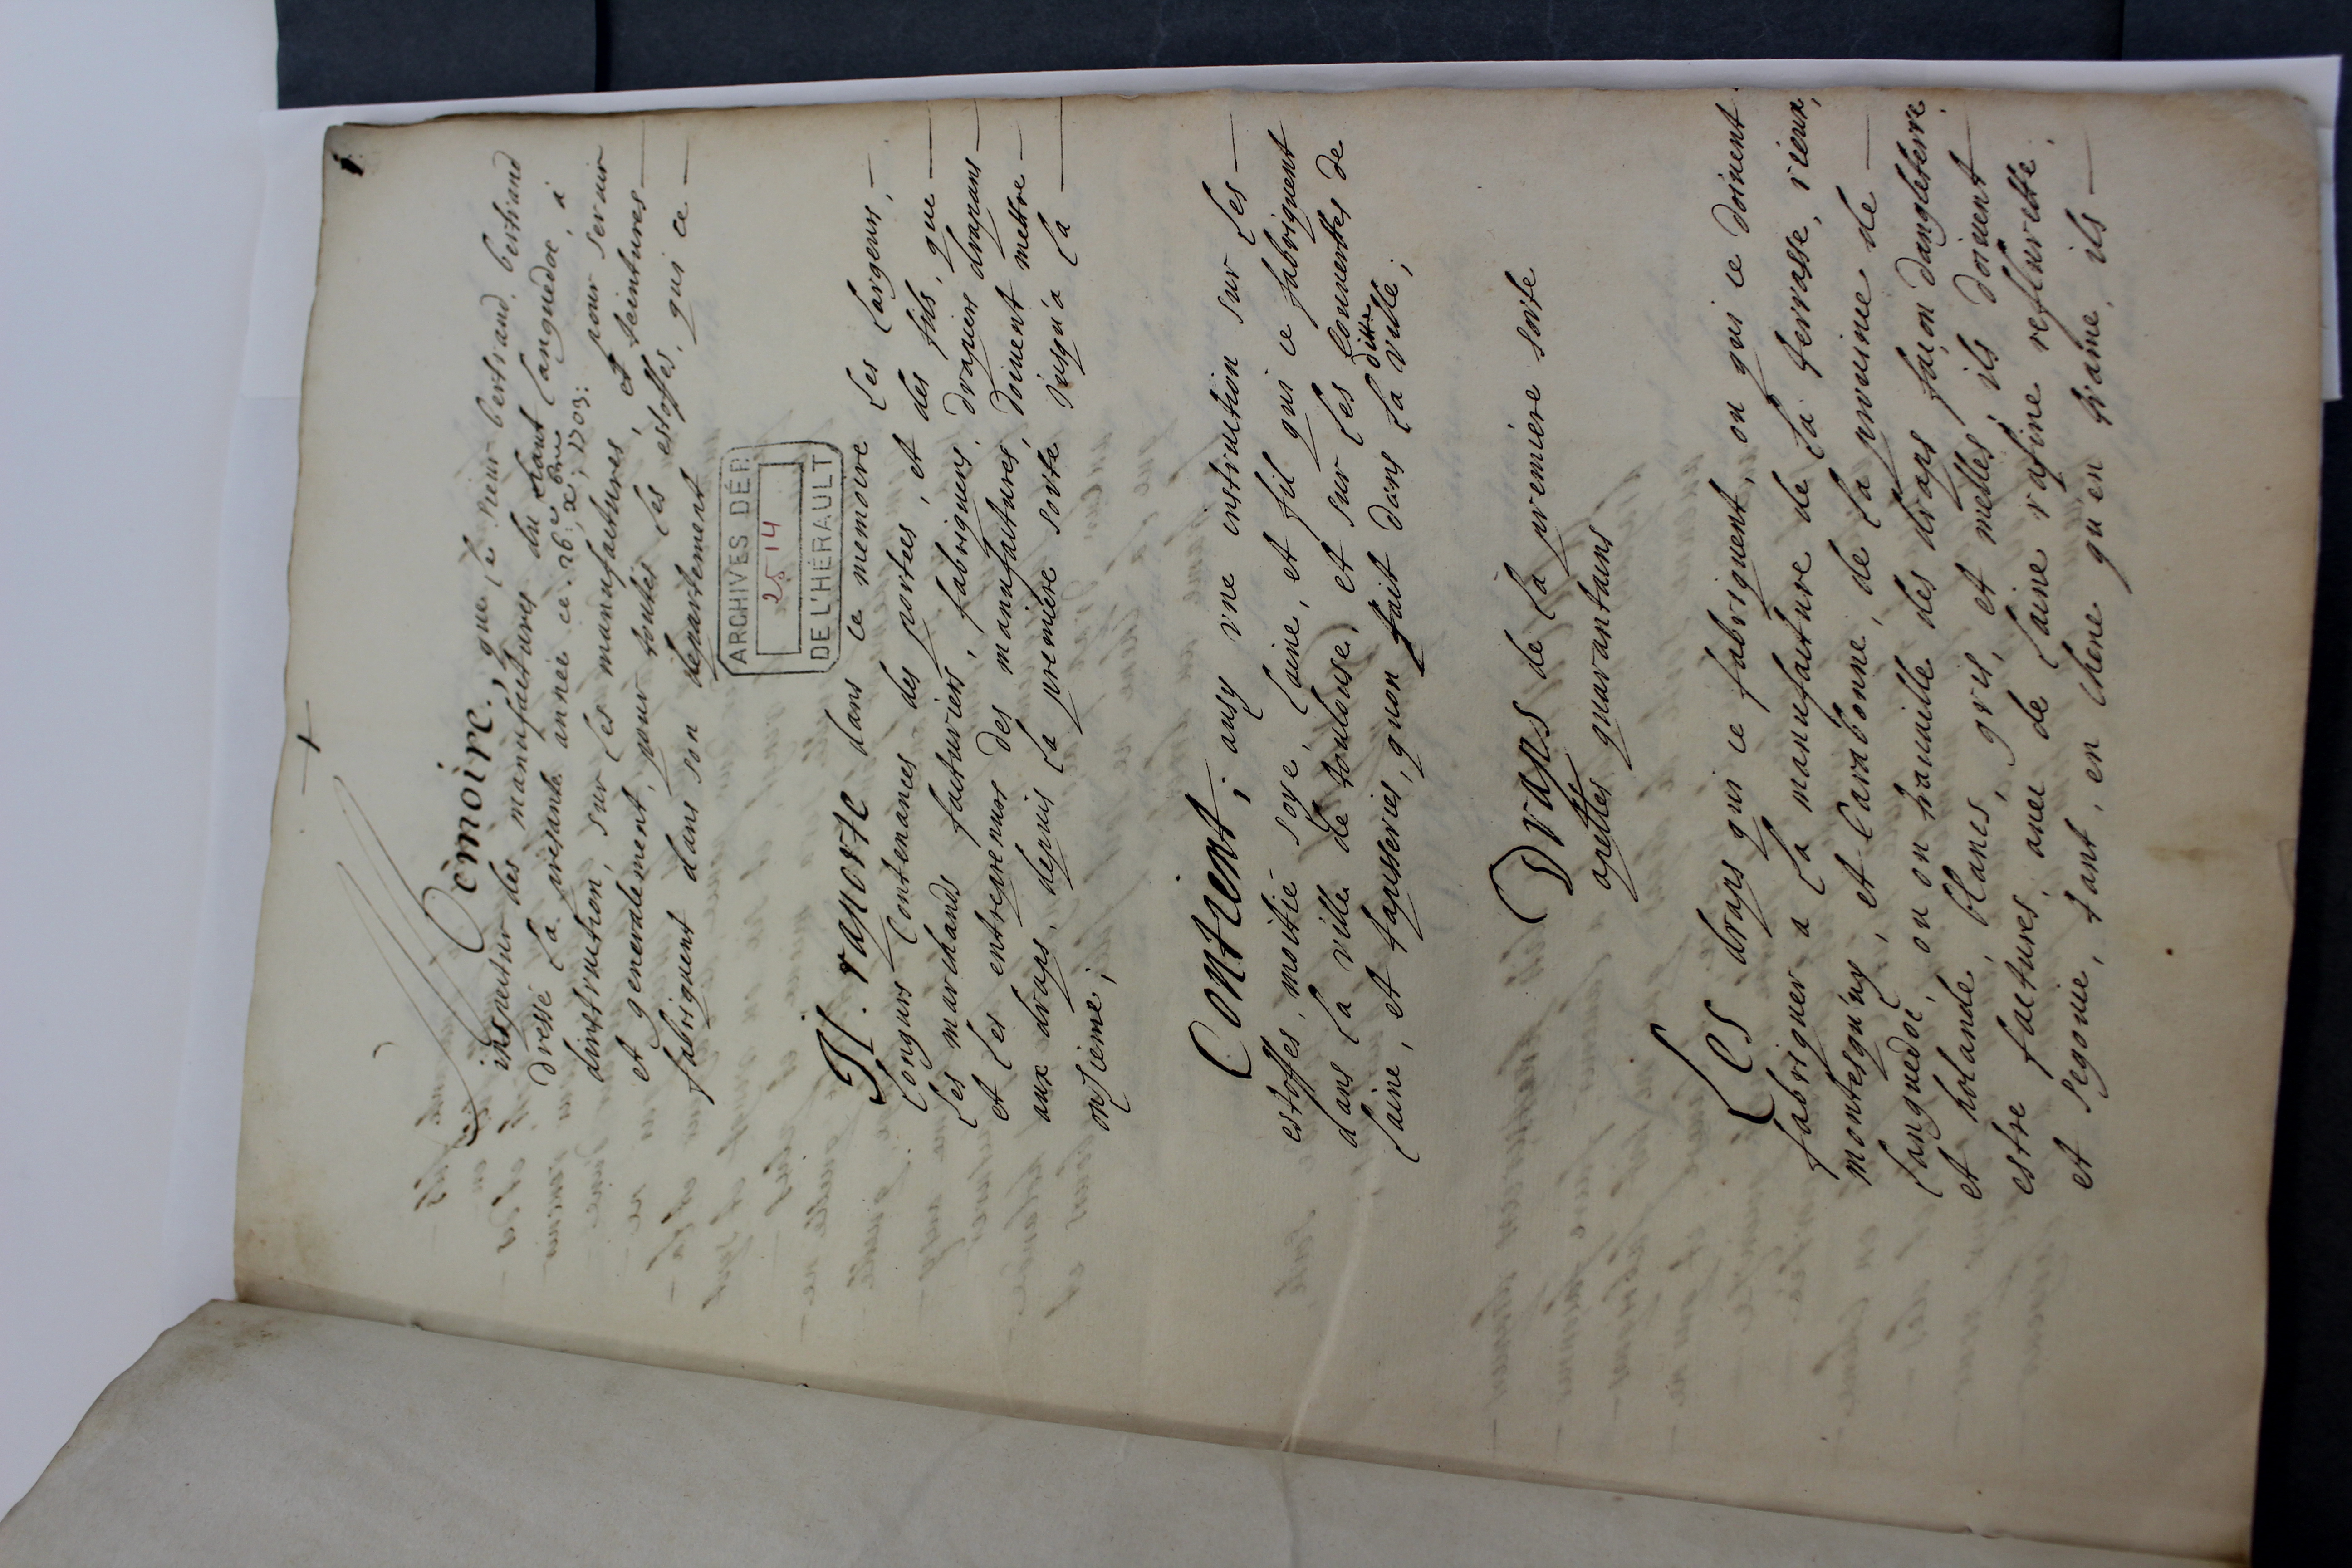 1
Mèmoire, que le sieur bertrand, bertrand
inspecteur des manufactures du haut Languedoc, à
Dressé la presante année ce. 26e xbre 1703: pour servir
dinstruction, sur les manufactures, et teintures
et generalement, pour toutes les estoffes, qui ce
fabriquent dans son departement
ARCHIVES DÉP.
25 14
DE L'HÉRAULT
Il raporte dans ce memoire les largeurs,
longurs contenances des portées, et des fils, que
les marchands facturiers, fabriquers, drapiers drapans
et les entreprenurs des manufactures, doivent mettre
aux draps, depuis la premiere sorte jusqu'a la
onsieme;
Contient; ausy vne instruction sur les
estoffes, moitié soye, laine, et fil qui ce fabriquent
dans la ville de toulouse, et sur les couuertes de
laine, et tapisseries, quon fait dans la ditte ville;
Draps de la premiere sorte
apellés quarantains
Les draps qui ce fabriquent, ou qui ce doiuent
fabriquer a la manufacture de la terrasse, rieux,
montesquiuy, et Carabonne, de la prouince de
Languedoc, ou on trauaille des draps façon dangleterre
et holande, blancs, gris, et mellés, ils doiuent
estre facturés, auec de laine rafine refleurette
et segouie, tant, en chene qu'en trame, ils